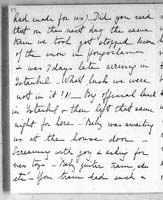 had made for us). Did you read
that on the next day the same
train we took got stopped because
of the snow in
& was 7 days late arriving in
Istanbul – What luck we were
not in it!! – By official land
in Istanbul & then left that same
night for here – was awaiting
us at the house door –
Screaming with joy & asking for
new toys – train
etc – You train had such a